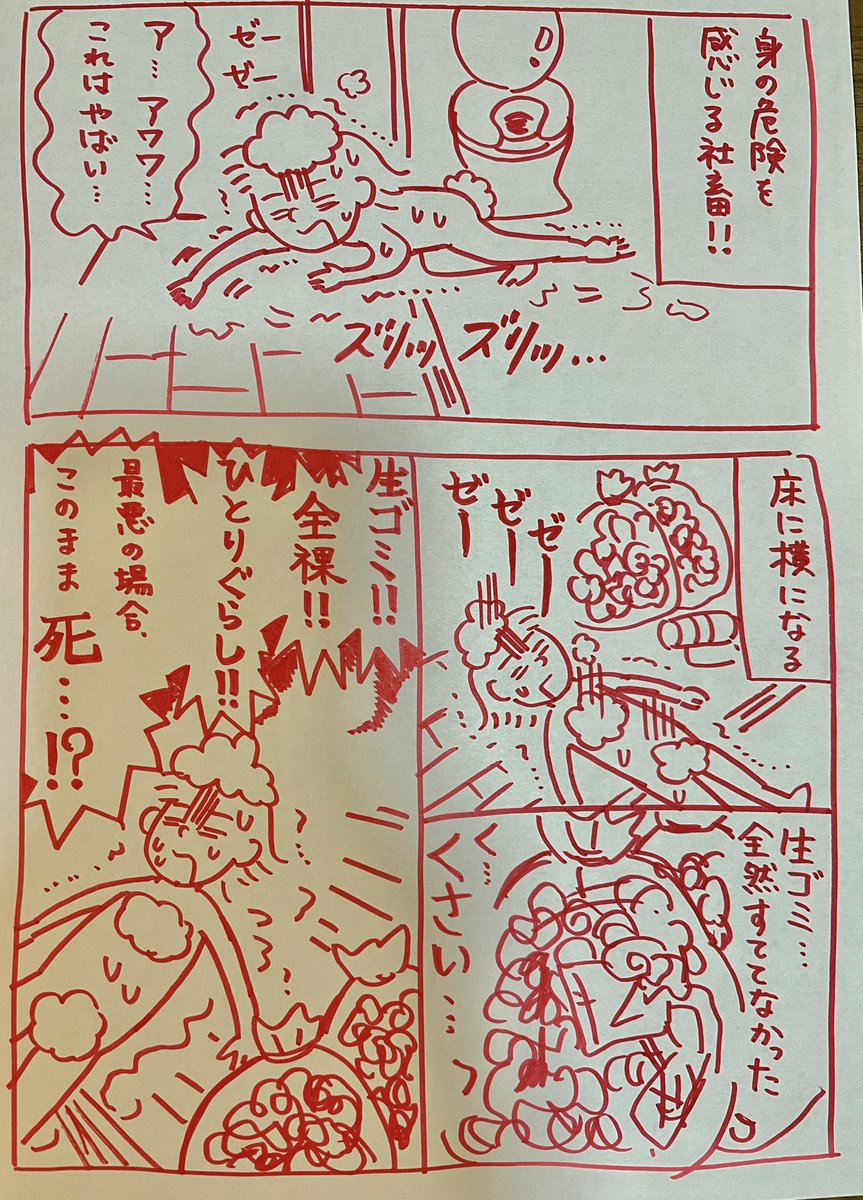 身の危険を
感じる社畜!!
ゼー
ゼー
ア…アワワ…
これはやばい…
ズリッ ズリッ…
床に横になる
ゼー
ゼー
ゼー
生ゴミ…
全然すててなかった
く…
くさい…っ
生ゴミ!!
全裸!!
ひとりぐらし!!
最悪の場合、
このまま死…!?